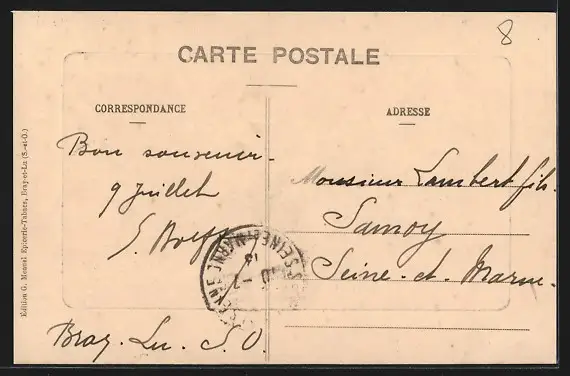 8
CARTE POSTALE
CORRESPONDANCE
ADRESSE
Bon souvenir.
9 Juillet
Monsieur Lambert fils.
Samoy
Seine-et-Marne.
Bray. Lu. S. O.
SEINE-ET-MARNE
Edition G. Mesnel Epicerie-Tabacs, Bray-et-Lu (S.-et-O.)